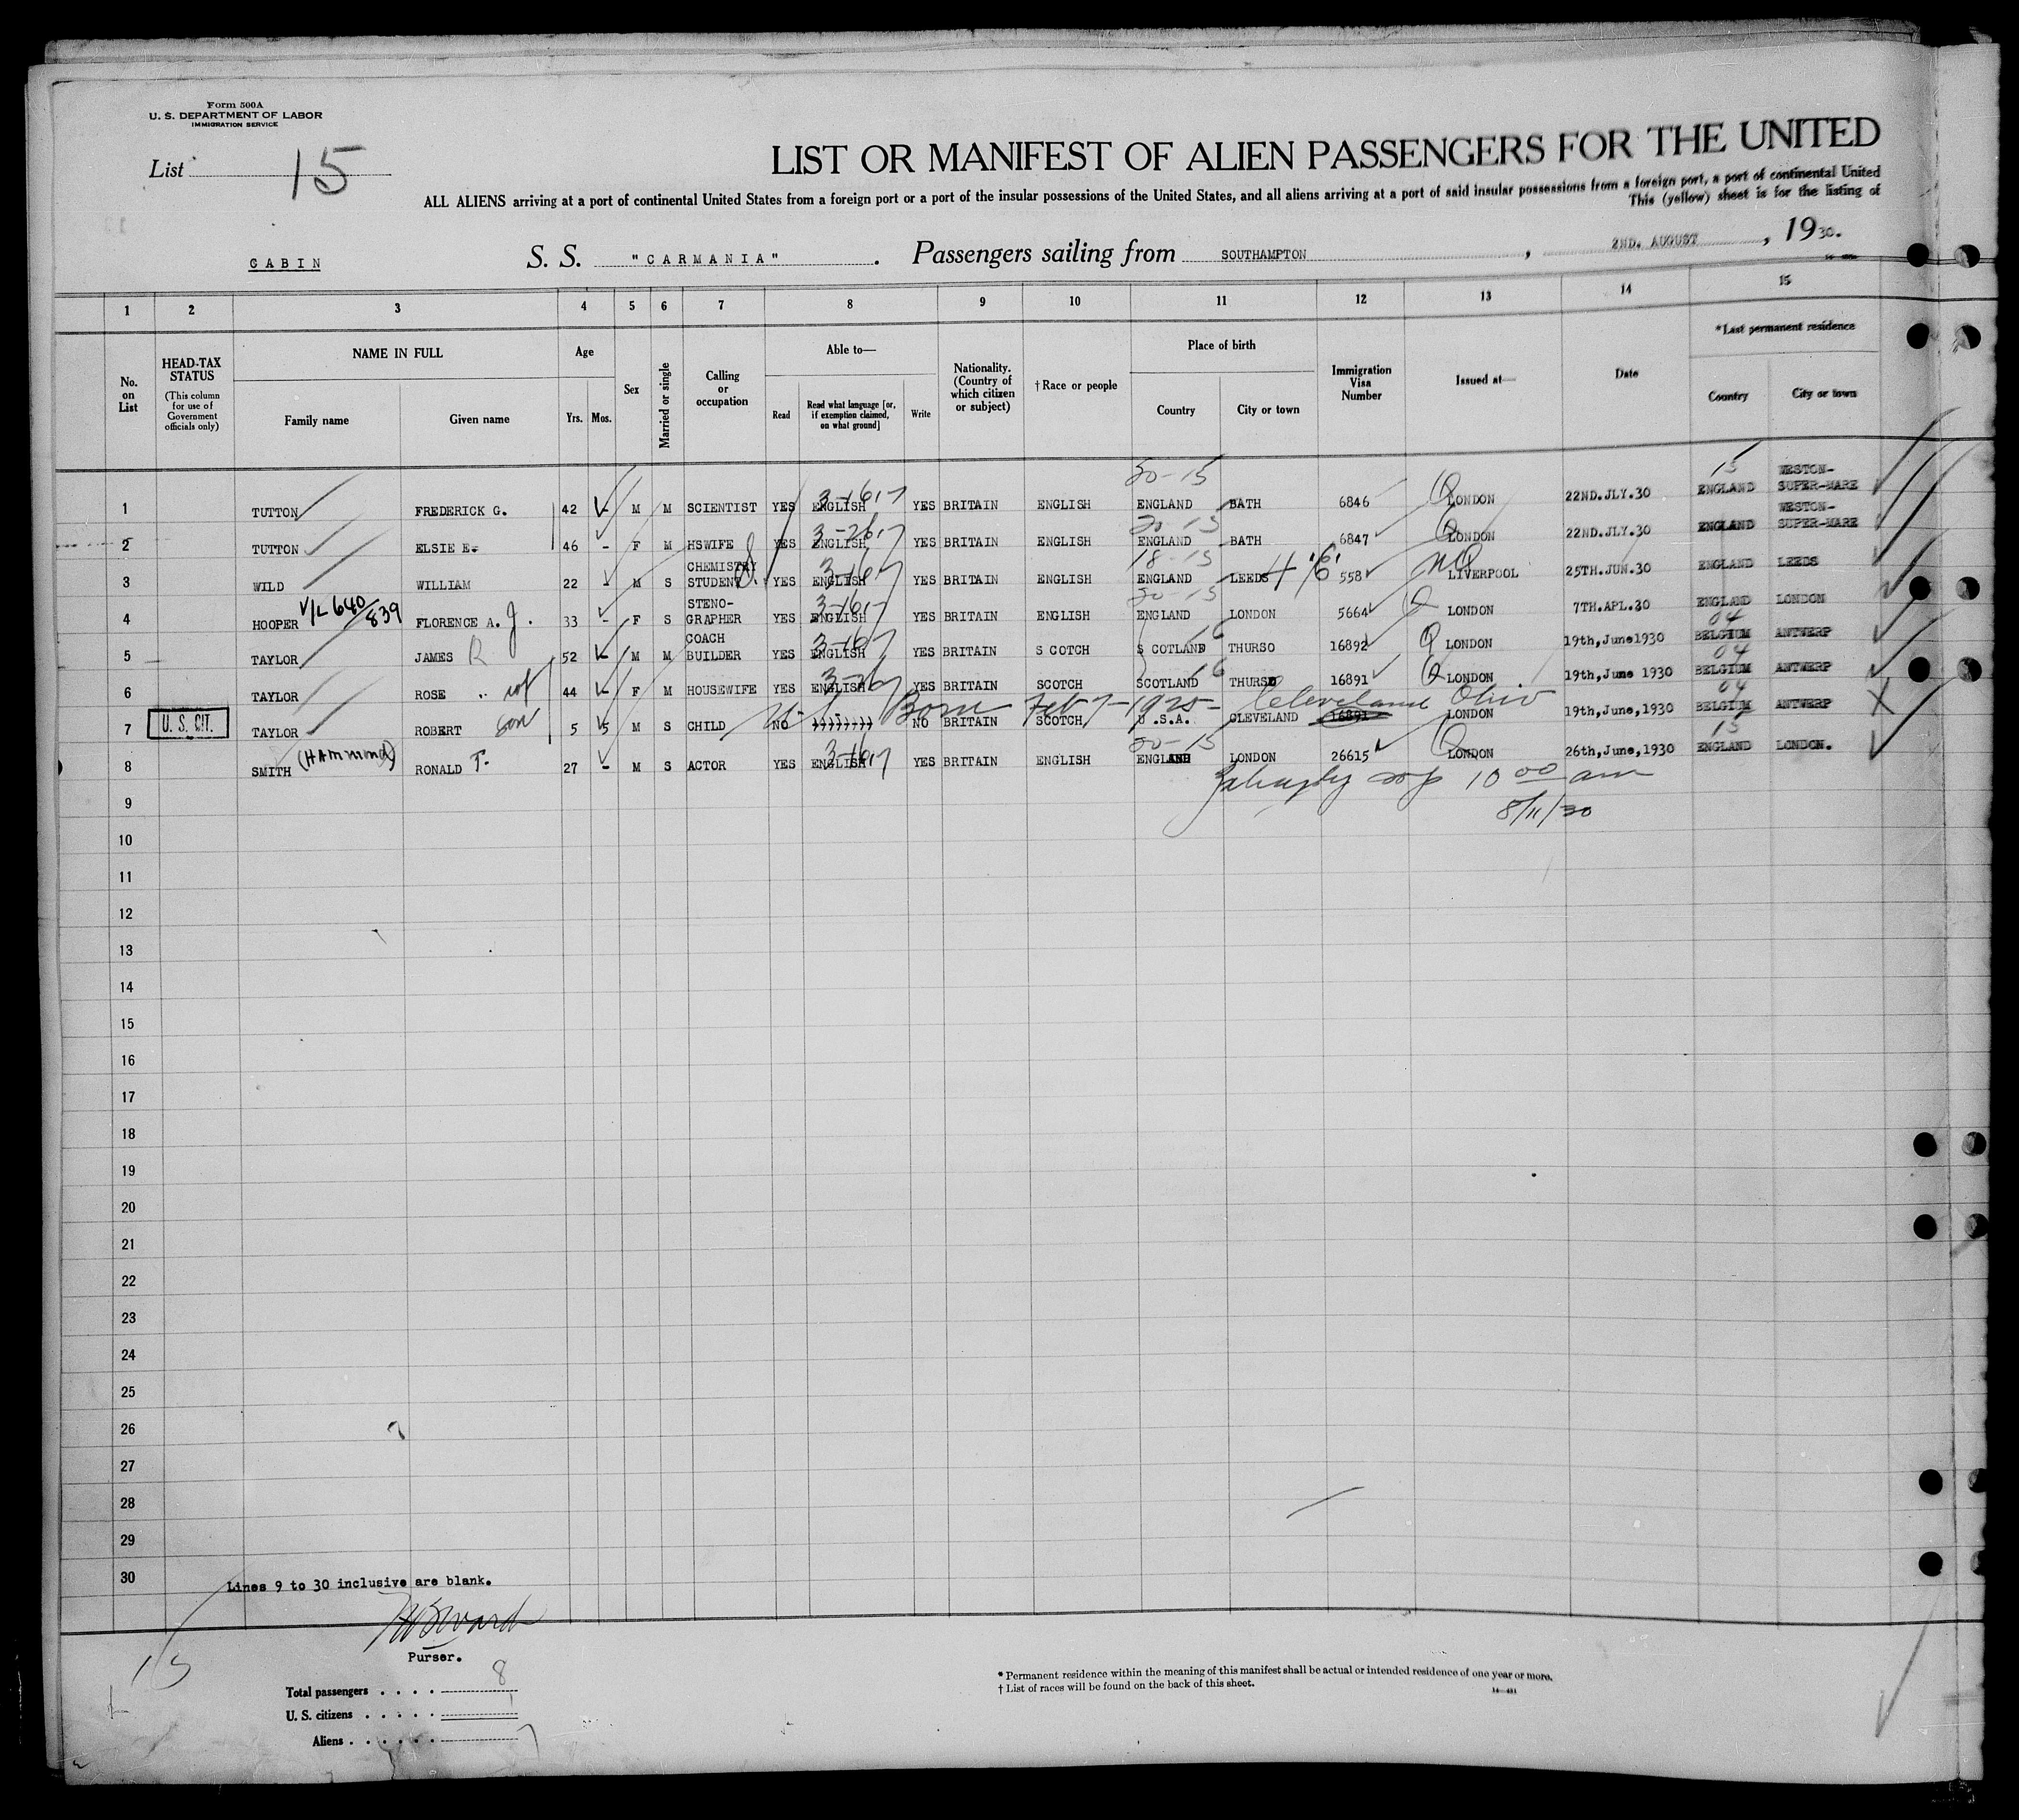 Form 500A
U. S. DEPARTMENT OF LABOR
IMMIGRATION SERVICE
List 15
LIST OR MANIFEST OF ALIEN PASSENGERS FOR THE UNITED
ALL ALIENS arriving at a port of continental United States from a foreign port or a port of the insular possessions of the United States, and all aliens arriving at a port of said insular possessions from a foreign port, a port of continental United
This (yellow) sheet is for the listing of
CABIN S. S. "CARMANIA". Passengers sailing from SOUTHAMPTON, 2ND. AUGUST, 1930.
1 2 3 4 5 6 7 8 9 10 11 12 13 14 15
No. on List
HEAD-TAX STATUS (This column for use of Government officials only)
NAME IN FULL Family name Given name
Age Yrs. Mos.
Sex
Married or single
Calling or occupation
Able to— Read Read what language [or, if exemption claimed, on what ground] Write
Nationality. (Country of which citizen or subject)
† Race or people
Place of birth Country City or town
Immigration Visa Number
Issued at—
Date
*Last permanent residence Country City or town
1 TUTTON FREDERICK G. 42 - M M SCIENTIST YES ENGLISH YES BRITAIN ENGLISH ENGLAND BATH 6846 LONDON 22ND.JLY.30 ENGLAND WESTON-SUPER-MARE
2 TUTTON ELSIE E. 46 - F M HSWIFE YES ENGLISH YES BRITAIN ENGLISH ENGLAND BATH 6847 LONDON 22ND.JLY.30 ENGLAND WESTON-SUPER-MARE
3 WILD WILLIAM 22 - M S CHEMISTRY STUDENT. YES ENGLISH YES BRITAIN ENGLISH ENGLAND LEEDS 558 LIVERPOOL 25TH.JUN.30 ENGLAND LEEDS
4 HOOPER V/L 640/839 FLORENCE A. J. 33 - F S STENO-GRAPHER YES ENGLISH YES BRITAIN ENGLISH ENGLAND LONDON 5664 LONDON 7TH.APL.30 ENGLAND LONDON
5 TAYLOR JAMES R 52 - M M COACH BUILDER YES ENGLISH YES BRITAIN S COTCH S COTLAND THURSO 16892 LONDON 19th,June1930 BELGIUM ANTWERP
6 TAYLOR ROSE wf 44 - F M HOUSEWIFE YES ENGLISH YES BRITAIN SCOTCH SCOTLAND THURSO 16891 LONDON 19th,June 1930 BELGIUM ANTWERP
US Born Feb 7-1925- Cleveland Ohio
7 U. S. CIT. TAYLOR ROBERT son 5 5 M S CHILD NO NO BRITAIN SCOTCH U.S.A. CLEVELAND 16891 LONDON 19th,June,1930 BELGIUM ANTWERP
8 SMITH (HAMMOND) RONALD F. 27 - M S ACTOR YES ENGLISH YES BRITAIN ENGLISH ENGLAND LONDON 26615 LONDON 26th,June,1930 ENGLAND LONDON.
10 00 am
8/11/30
9
10
11
12
13
14
15
16
17
18
19
20
21
22
23
24
25
26
27
28
29
30
Lines 9 to 30 inclusive are blank.
Purser.
15
Total passengers . . . . 8
U. S. citizens . . . . . 1
Aliens . . . . . . 7
* Permanent residence within the meaning of this manifest shall be actual or intended residence of one year or more.
† List of races will be found on the back of this sheet.